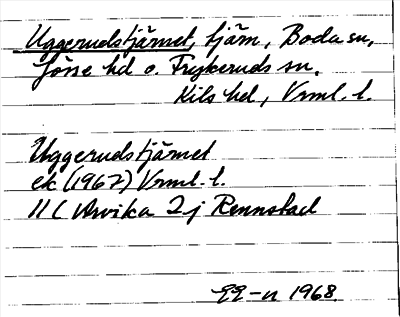 Uggerudstjärnet, tjärn, Boda sn,
Jösse hd o. Frykeruds sn,
Kils hd, Vrml. l.
Uggerudstjärnet
ek (1967) Vrml. l.
11 C Arvika 2 j Rennstad
1968